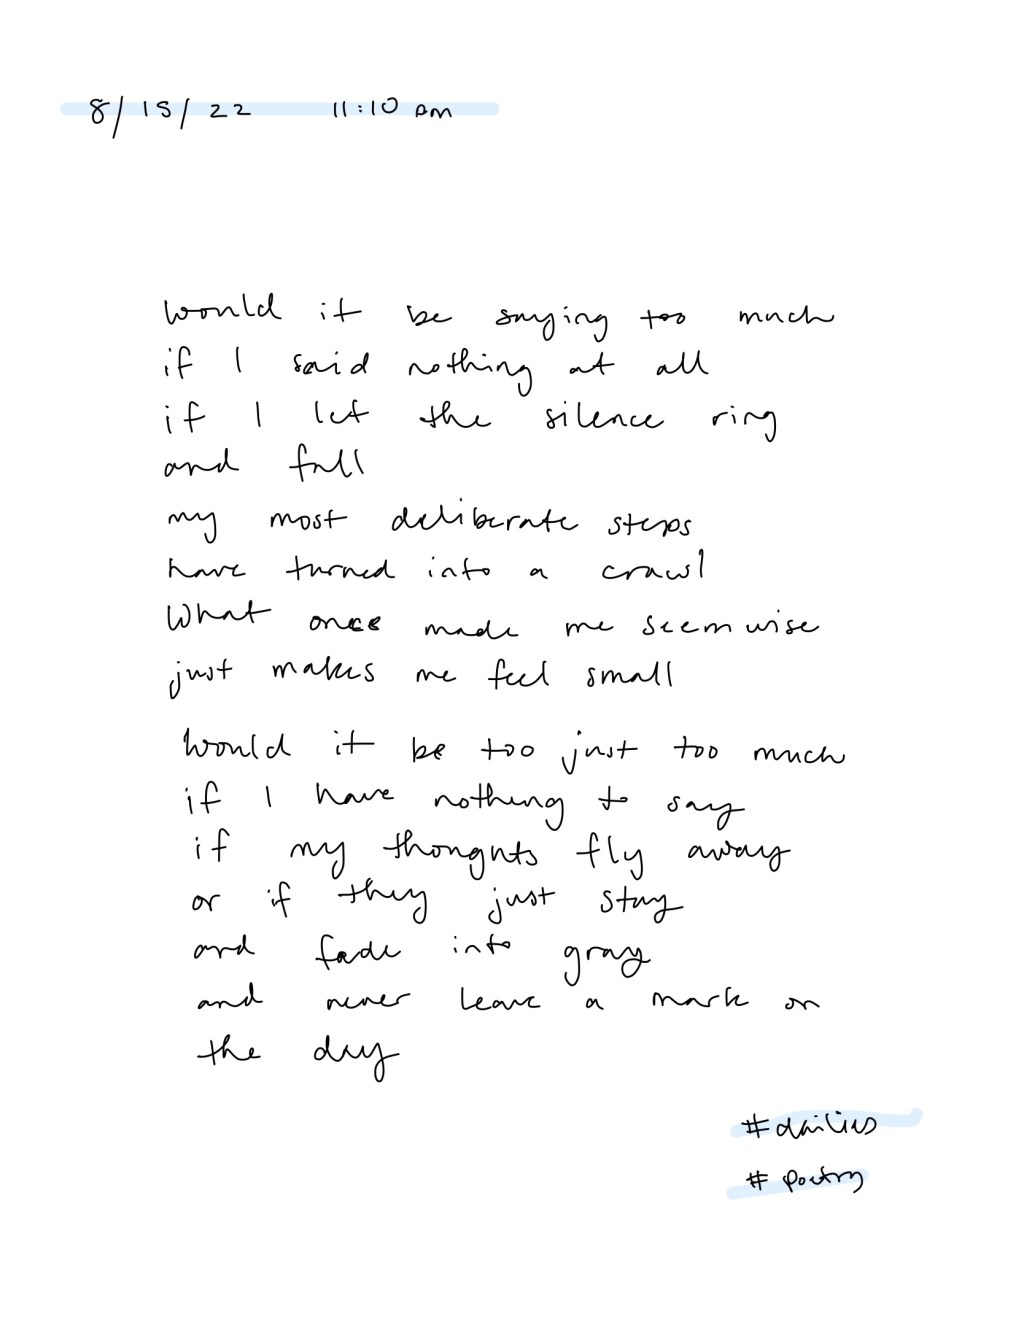 8/15/22 11:10 am
would it be saying too much
if I said nothing at all
if I let the silence ring
and fall
my most deliberate steps
have turned into a crawl
What once made me seem wise
just makes me feel small
Would it be too just too much
if I have nothing to say
if my thoughts fly away
or if they just stay
and fade into gray
and never leave a mark on
the day
#dailies
# poetry